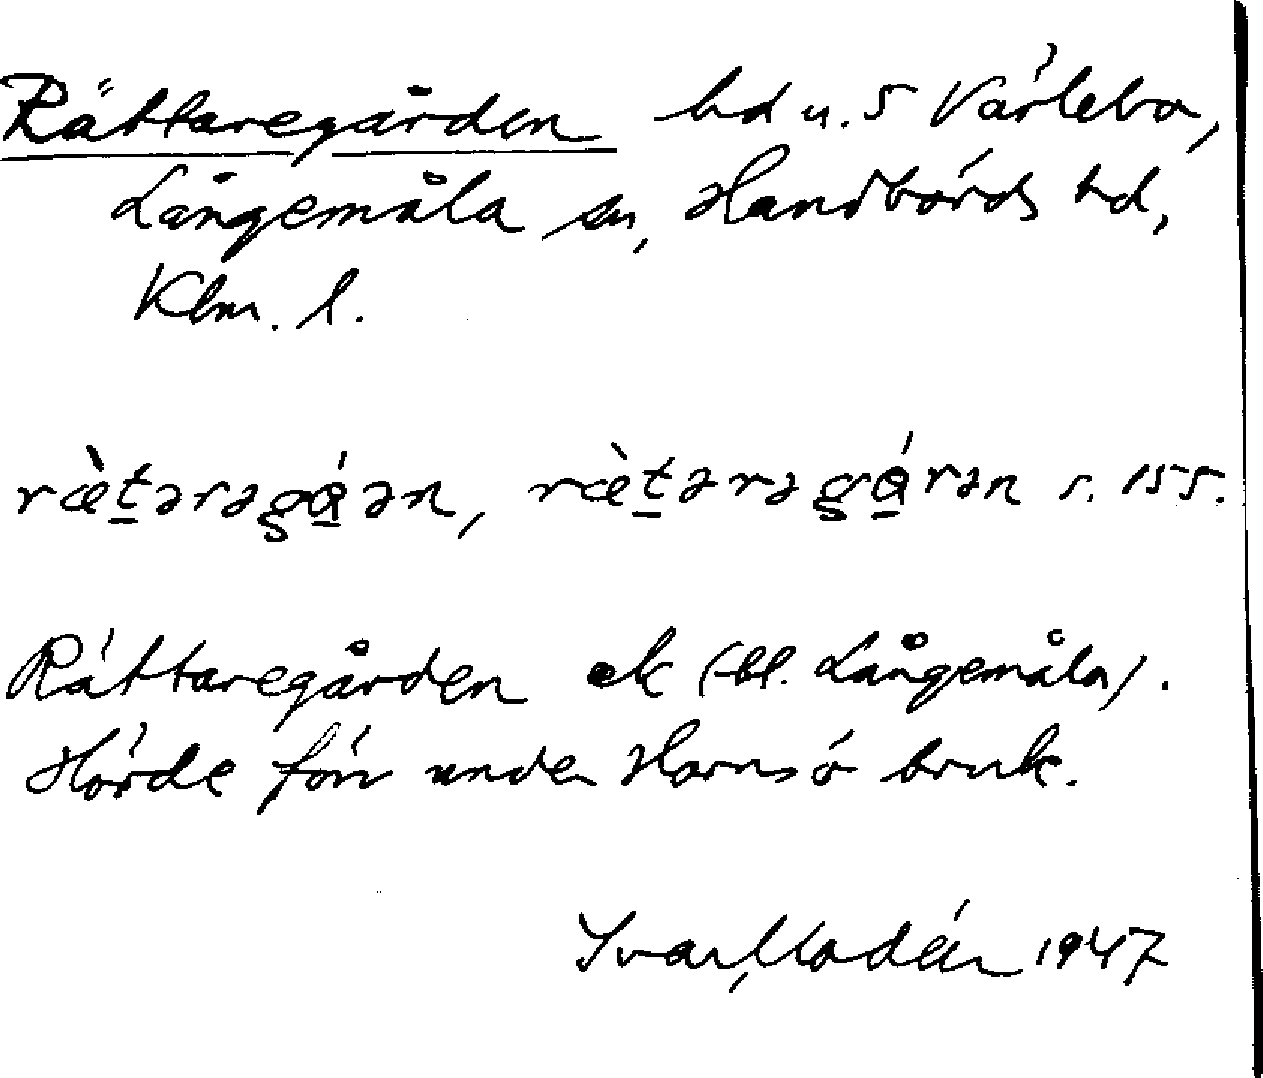 Rättaregården hd u. 5 Värlebo,
Långemåla sn, Handbörds hd,
Klm. l.
ræ̀t̠ərəgɑ́ən, ræ̀t̠ərəgɑ́rən s. 155.
Rättaregården ek (bl. Långemåla).
Hörde förr under Hornsö bruk.
Ivar Modéer 1947